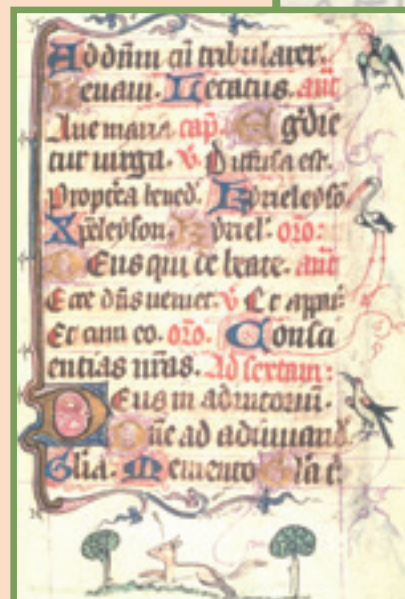 Ad dnm cu tribularer.
Leuaui. Letatus. ant
Aue maria cap. Egdie
tur uirga. v. Diffusa est.
Propterea bened. Kyrieleyson
Xpeleyson. Kyriel. oro:
Deus qui de beate. ant
Ecce dns ueniet. v Et appari
Et cum eo. oro. Consci
entias nras. Ad sextam:
Deus in adiutoriu.
Dne ad adiuuand.
Glia. Memento Glia t.